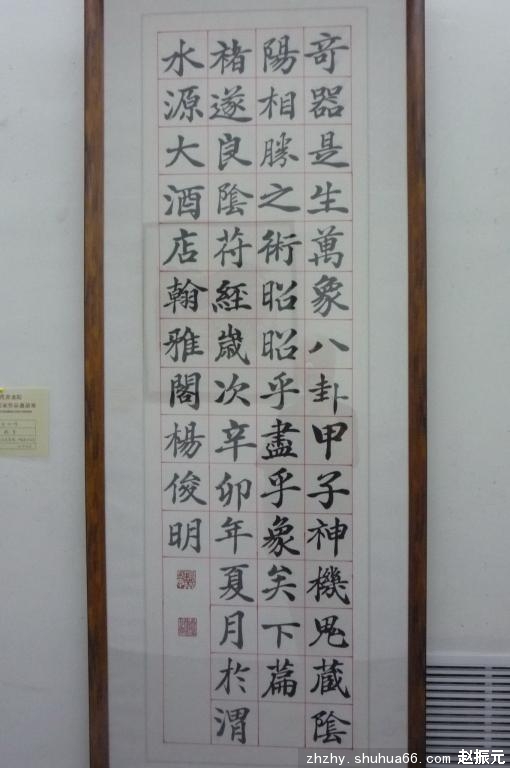 奇器是生萬象八卦甲子神機鬼藏陰
陽相勝之術昭昭乎盡乎象矣下篇
褚遂良陰符經歲次辛卯年夏月於渭
水源大酒店翰雅閣楊俊明
zhzhy.shuhua66.com 赵振元